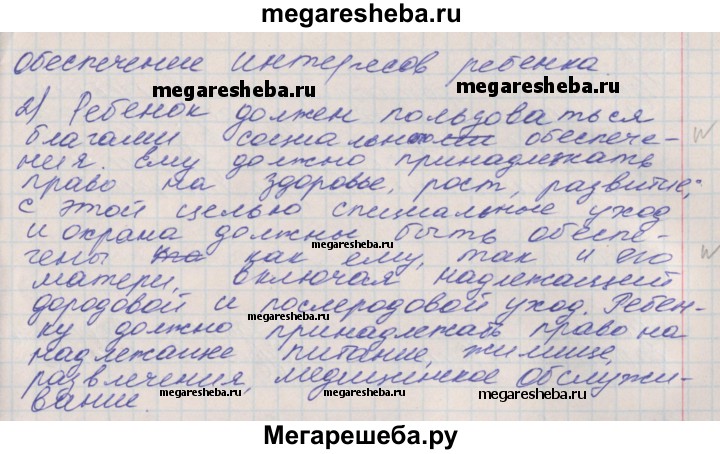 megaresheba.ru
обеспечение интересов ребенка.
megaresheba.ru
megaresheba.ru
2) Ребенок должен пользоваться
благами социально обеспече-
ния. ему должно принадлежать
право на здоровье, рост, развитие;
с этой целью специальные уход
и охрана должны быть обеспе-
megaresheba.ru
чены как ему, так и его
матери, включая надлежащий
дородовой и послеродовой уход. Ребен-
megaresheba.ru
ку должно принадлежать право на
надлежащее питание, жилище,
развлечения, медицинское обслужи-
megaresheba.ru
megaresheba.ru
вание.
Мегарешеба.ру